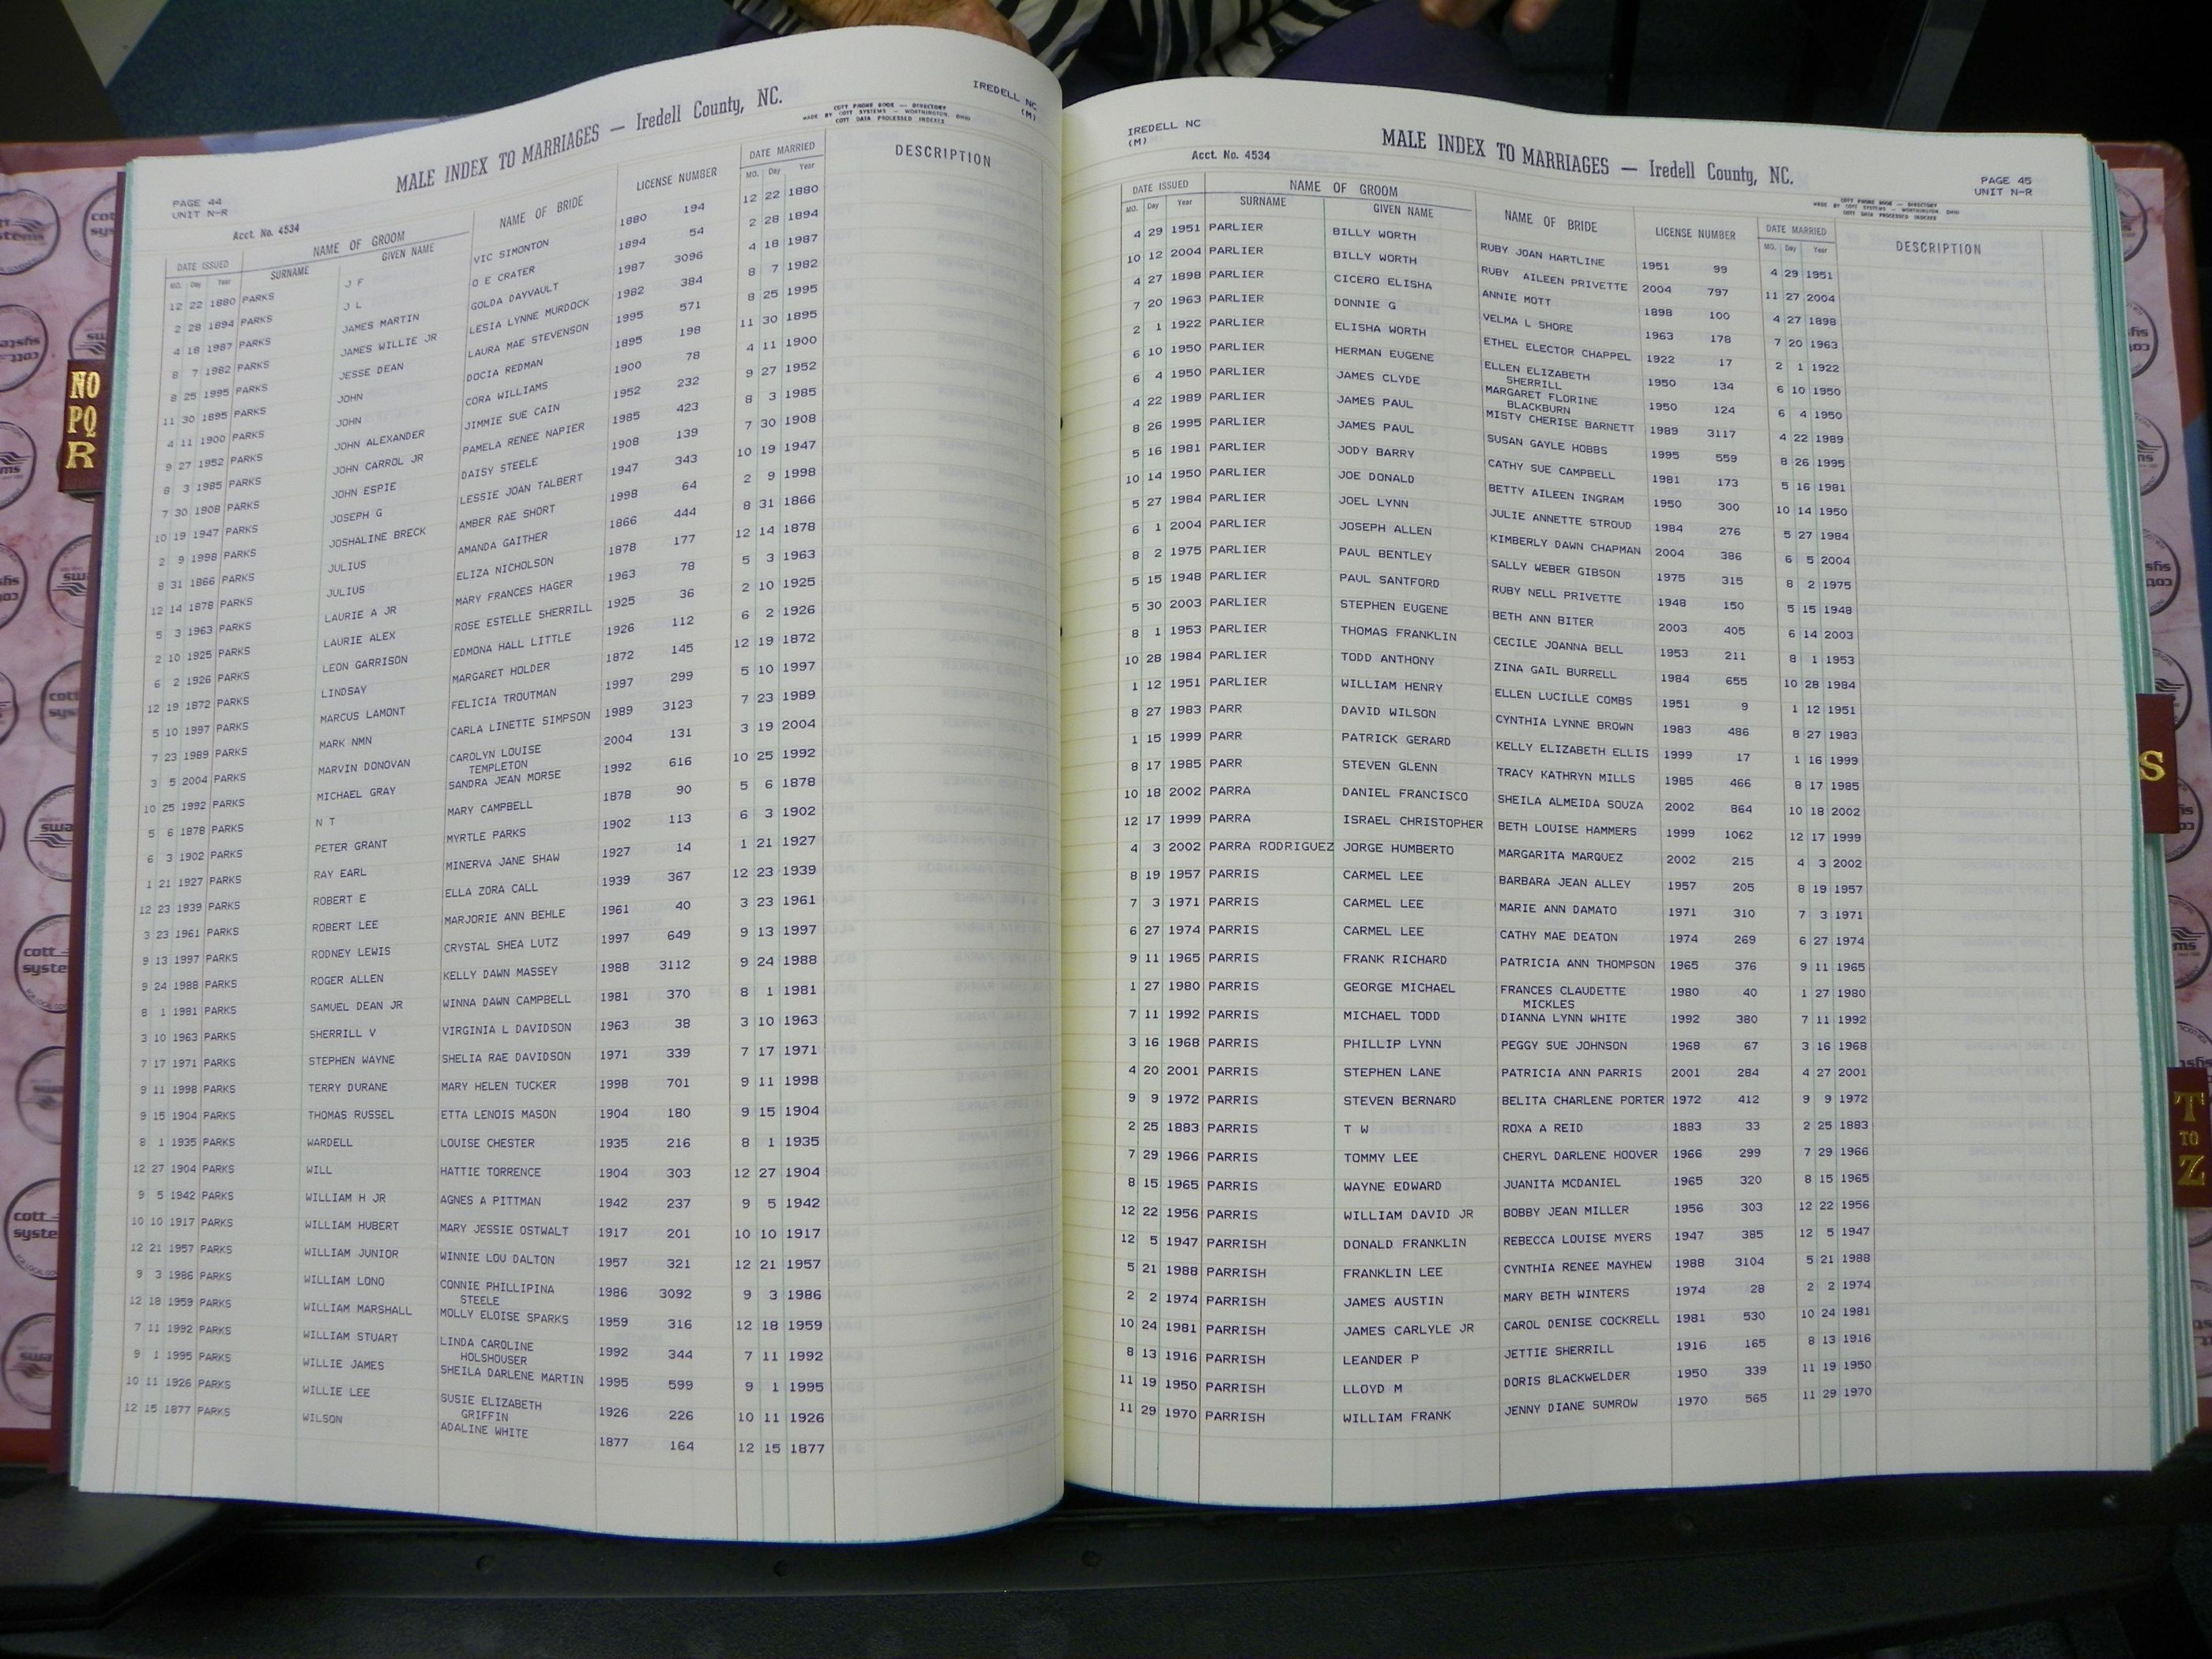 PAGE 44
UNIT N-R
MALE INDEX TO MARRIAGES — Iredell County, NC.
IREDELL NC
(M)
COTT PHONE BOOK — DIRECTORY
MADE BY COTT SYSTEMS — WORTHINGTON, OHIO
COTT DATA PROCESSED INDEXES
Acct. No. 4534
DATE ISSUED NAME OF GROOM NAME OF BRIDE LICENSE NUMBER DATE MARRIED DESCRIPTION
MO. Day Year SURNAME GIVEN NAME MO. Day Year
12 22 1880 PARKS J F VIC SIMONTON 1880 194 12 22 1880
2 28 1894 PARKS J L O E CRATER 1894 54 2 28 1894
4 18 1987 PARKS JAMES MARTIN GOLDA DAYVAULT 1987 3096 4 18 1987
8 7 1982 PARKS JAMES WILLIE JR LESIA LYNNE MURDOCK 1982 384 8 7 1982
8 25 1995 PARKS JESSE DEAN LAURA MAE STEVENSON 1995 571 8 25 1995
11 30 1895 PARKS JOHN DOCIA REDMAN 1895 198 11 30 1895
4 11 1900 PARKS JOHN CORA WILLIAMS 1900 78 4 11 1900
9 27 1952 PARKS JOHN ALEXANDER JIMMIE SUE CAIN 1952 232 9 27 1952
8 3 1985 PARKS JOHN CARROL JR PAMELA RENEE NAPIER 1985 423 8 3 1985
7 30 1908 PARKS JOHN ESPIE DAISY STEELE 1908 139 7 30 1908
10 19 1947 PARKS JOSEPH G LESSIE JOAN TALBERT 1947 343 10 19 1947
2 9 1998 PARKS JOSHALINE BRECK AMBER RAE SHORT 1998 64 2 9 1998
8 31 1866 PARKS JULIUS AMANDA GAITHER 1866 444 8 31 1866
12 14 1878 PARKS JULIUS ELIZA NICHOLSON 1878 177 12 14 1878
5 3 1963 PARKS LAURIE A JR MARY FRANCES HAGER 1963 78 5 3 1963
2 10 1925 PARKS LAURIE ALEX ROSE ESTELLE SHERRILL 1925 36 2 10 1925
6 2 1926 PARKS LEON GARRISON EDMONA HALL LITTLE 1926 112 6 2 1926
12 19 1872 PARKS LINDSAY MARGARET HOLDER 1872 145 12 19 1872
5 10 1997 PARKS MARCUS LAMONT FELICIA TROUTMAN 1997 299 5 10 1997
7 23 1989 PARKS MARK NMN CARLA LINETTE SIMPSON 1989 3123 7 23 1989
3 5 2004 PARKS MARVIN DONOVAN CAROLYN LOUISE 2004 131 3 19 2004
TEMPLETON
10 25 1992 PARKS MICHAEL GRAY SANDRA JEAN MORSE 1992 616 10 25 1992
5 6 1878 PARKS N T MARY CAMPBELL 1878 90 5 6 1878
6 3 1902 PARKS PETER GRANT MYRTLE PARKS 1902 113 6 3 1902
1 21 1927 PARKS RAY EARL MINERVA JANE SHAW 1927 14 1 21 1927
12 23 1939 PARKS ROBERT E ELLA ZORA CALL 1939 367 12 23 1939
3 23 1961 PARKS ROBERT LEE MARJORIE ANN BEHLE 1961 40 3 23 1961
9 13 1997 PARKS RODNEY LEWIS CRYSTAL SHEA LUTZ 1997 649 9 13 1997
9 24 1988 PARKS ROGER ALLEN KELLY DAWN MASSEY 1988 3112 9 24 1988
8 1 1981 PARKS SAMUEL DEAN JR WINNA DAWN CAMPBELL 1981 370 8 1 1981
3 10 1963 PARKS SHERRILL V VIRGINIA L DAVIDSON 1963 38 3 10 1963
7 17 1971 PARKS STEPHEN WAYNE SHELIA RAE DAVIDSON 1971 339 7 17 1971
9 11 1998 PARKS TERRY DURANE MARY HELEN TUCKER 1998 701 9 11 1998
9 15 1904 PARKS THOMAS RUSSEL ETTA LENOIS MASON 1904 180 9 15 1904
8 1 1935 PARKS WARDELL LOUISE CHESTER 1935 216 8 1 1935
12 27 1904 PARKS WILL HATTIE TORRENCE 1904 303 12 27 1904
9 5 1942 PARKS WILLIAM H JR AGNES A PITTMAN 1942 237 9 5 1942
10 10 1917 PARKS WILLIAM HUBERT MARY JESSIE OSTWALT 1917 201 10 10 1917
12 21 1957 PARKS WILLIAM JUNIOR WINNIE LOU DALTON 1957 321 12 21 1957
9 3 1986 PARKS WILLIAM LONO CONNIE PHILLIPINA 1986 3092 9 3 1986
STEELE
12 18 1959 PARKS WILLIAM MARSHALL MOLLY ELOISE SPARKS 1959 316 12 18 1959
7 11 1992 PARKS WILLIAM STUART LINDA CAROLINE 1992 344 7 11 1992
HOLSHOUSER
9 1 1995 PARKS WILLIE JAMES SHEILA DARLENE MARTIN 1995 599 9 1 1995
10 11 1926 PARKS WILLIE LEE SUSIE ELIZABETH 1926 226 10 11 1926
GRIFFIN
12 15 1877 PARKS WILSON ADALINE WHITE 1877 164 12 15 1877
IREDELL NC
(M)
MALE INDEX TO MARRIAGES — Iredell County, NC.
PAGE 45
UNIT N-R
Acct. No. 4534
COTT PHONE BOOK — DIRECTORY
MADE BY COTT SYSTEMS — WORTHINGTON, OHIO
COTT DATA PROCESSED INDEXES
DATE ISSUED NAME OF GROOM NAME OF BRIDE LICENSE NUMBER DATE MARRIED DESCRIPTION
MO. Day Year SURNAME GIVEN NAME MO. Day Year
4 29 1951 PARLIER BILLY WORTH RUBY JOAN HARTLINE 1951 99 4 29 1951
10 12 2004 PARLIER BILLY WORTH RUBY AILEEN PRIVETTE 2004 797 11 27 2004
4 27 1898 PARLIER CICERO ELISHA ANNIE MOTT 1898 100 4 27 1898
7 20 1963 PARLIER DONNIE G VELMA L SHORE 1963 178 7 20 1963
2 1 1922 PARLIER ELISHA WORTH ETHEL ELECTOR CHAPPEL 1922 17 2 1 1922
6 10 1950 PARLIER HERMAN EUGENE ELLEN ELIZABETH 1950 134 6 10 1950
SHERRILL
6 4 1950 PARLIER JAMES CLYDE MARGARET FLORINE 1950 124 6 4 1950
BLACKBURN
4 22 1989 PARLIER JAMES PAUL MISTY CHERISE BARNETT 1989 3117 4 22 1989
8 26 1995 PARLIER JAMES PAUL SUSAN GAYLE HOBBS 1995 559 8 26 1995
5 16 1981 PARLIER JODY BARRY CATHY SUE CAMPBELL 1981 173 5 16 1981
10 14 1950 PARLIER JOE DONALD BETTY AILEEN INGRAM 1950 300 10 14 1950
5 27 1984 PARLIER JOEL LYNN JULIE ANNETTE STROUD 1984 276 5 27 1984
6 1 2004 PARLIER JOSEPH ALLEN KIMBERLY DAWN CHAPMAN 2004 386 6 5 2004
8 2 1975 PARLIER PAUL BENTLEY SALLY WEBER GIBSON 1975 315 8 2 1975
5 15 1948 PARLIER PAUL SANTFORD RUBY NELL PRIVETTE 1948 150 5 15 1948
5 30 2003 PARLIER STEPHEN EUGENE BETH ANN BITER 2003 405 6 14 2003
8 1 1953 PARLIER THOMAS FRANKLIN CECILE JOANNA BELL 1953 211 8 1 1953
10 28 1984 PARLIER TODD ANTHONY ZINA GAIL BURRELL 1984 655 10 28 1984
1 12 1951 PARLIER WILLIAM HENRY ELLEN LUCILLE COMBS 1951 9 1 12 1951
8 27 1983 PARR DAVID WILSON CYNTHIA LYNNE BROWN 1983 486 8 27 1983
1 15 1999 PARR PATRICK GERARD KELLY ELIZABETH ELLIS 1999 17 1 16 1999
8 17 1985 PARR STEVEN GLENN TRACY KATHRYN MILLS 1985 466 8 17 1985
10 18 2002 PARRA DANIEL FRANCISCO SHEILA ALMEIDA SOUZA 2002 864 10 18 2002
12 17 1999 PARRA ISRAEL CHRISTOPHER BETH LOUISE HAMMERS 1999 1062 12 17 1999
4 3 2002 PARRA RODRIGUEZ JORGE HUMBERTO MARGARITA MARQUEZ 2002 215 4 3 2002
8 19 1957 PARRIS CARMEL LEE BARBARA JEAN ALLEY 1957 205 8 19 1957
7 3 1971 PARRIS CARMEL LEE MARIE ANN DAMATO 1971 310 7 3 1971
6 27 1974 PARRIS CARMEL LEE CATHY MAE DEATON 1974 269 6 27 1974
9 11 1965 PARRIS FRANK RICHARD PATRICIA ANN THOMPSON 1965 376 9 11 1965
1 27 1980 PARRIS GEORGE MICHAEL FRANCES CLAUDETTE 1980 40 1 27 1980
MICKLES
7 11 1992 PARRIS MICHAEL TODD DIANNA LYNN WHITE 1992 380 7 11 1992
3 16 1968 PARRIS PHILLIP LYNN PEGGY SUE JOHNSON 1968 67 3 16 1968
4 20 2001 PARRIS STEPHEN LANE PATRICIA ANN PARRIS 2001 284 4 27 2001
9 9 1972 PARRIS STEVEN BERNARD BELITA CHARLENE PORTER 1972 412 9 9 1972
2 25 1883 PARRIS T W ROXA A REID 1883 33 2 25 1883
7 29 1966 PARRIS TOMMY LEE CHERYL DARLENE HOOVER 1966 299 7 29 1966
8 15 1965 PARRIS WAYNE EDWARD JUANITA MCDANIEL 1965 320 8 15 1965
12 22 1956 PARRIS WILLIAM DAVID JR BOBBY JEAN MILLER 1956 303 12 22 1956
12 5 1947 PARRISH DONALD FRANKLIN REBECCA LOUISE MYERS 1947 385 12 5 1947
5 21 1988 PARRISH FRANKLIN LEE CYNTHIA RENEE MAYHEW 1988 3104 5 21 1988
2 2 1974 PARRISH JAMES AUSTIN MARY BETH WINTERS 1974 28 2 2 1974
10 24 1981 PARRISH JAMES CARLYLE JR CAROL DENISE COCKRELL 1981 530 10 24 1981
8 13 1916 PARRISH LEANDER P JETTIE SHERRILL 1916 165 8 13 1916
11 19 1950 PARRISH LLOYD M DORIS BLACKWELDER 1950 339 11 19 1950
11 29 1970 PARRISH WILLIAM FRANK JENNY DIANE SUMROW 1970 565 11 29 1970
NO
PQ
R
S
T
TO
Z
cott
systems